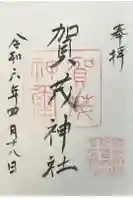 奉拝
賀茂神社
令和六年四月十八日